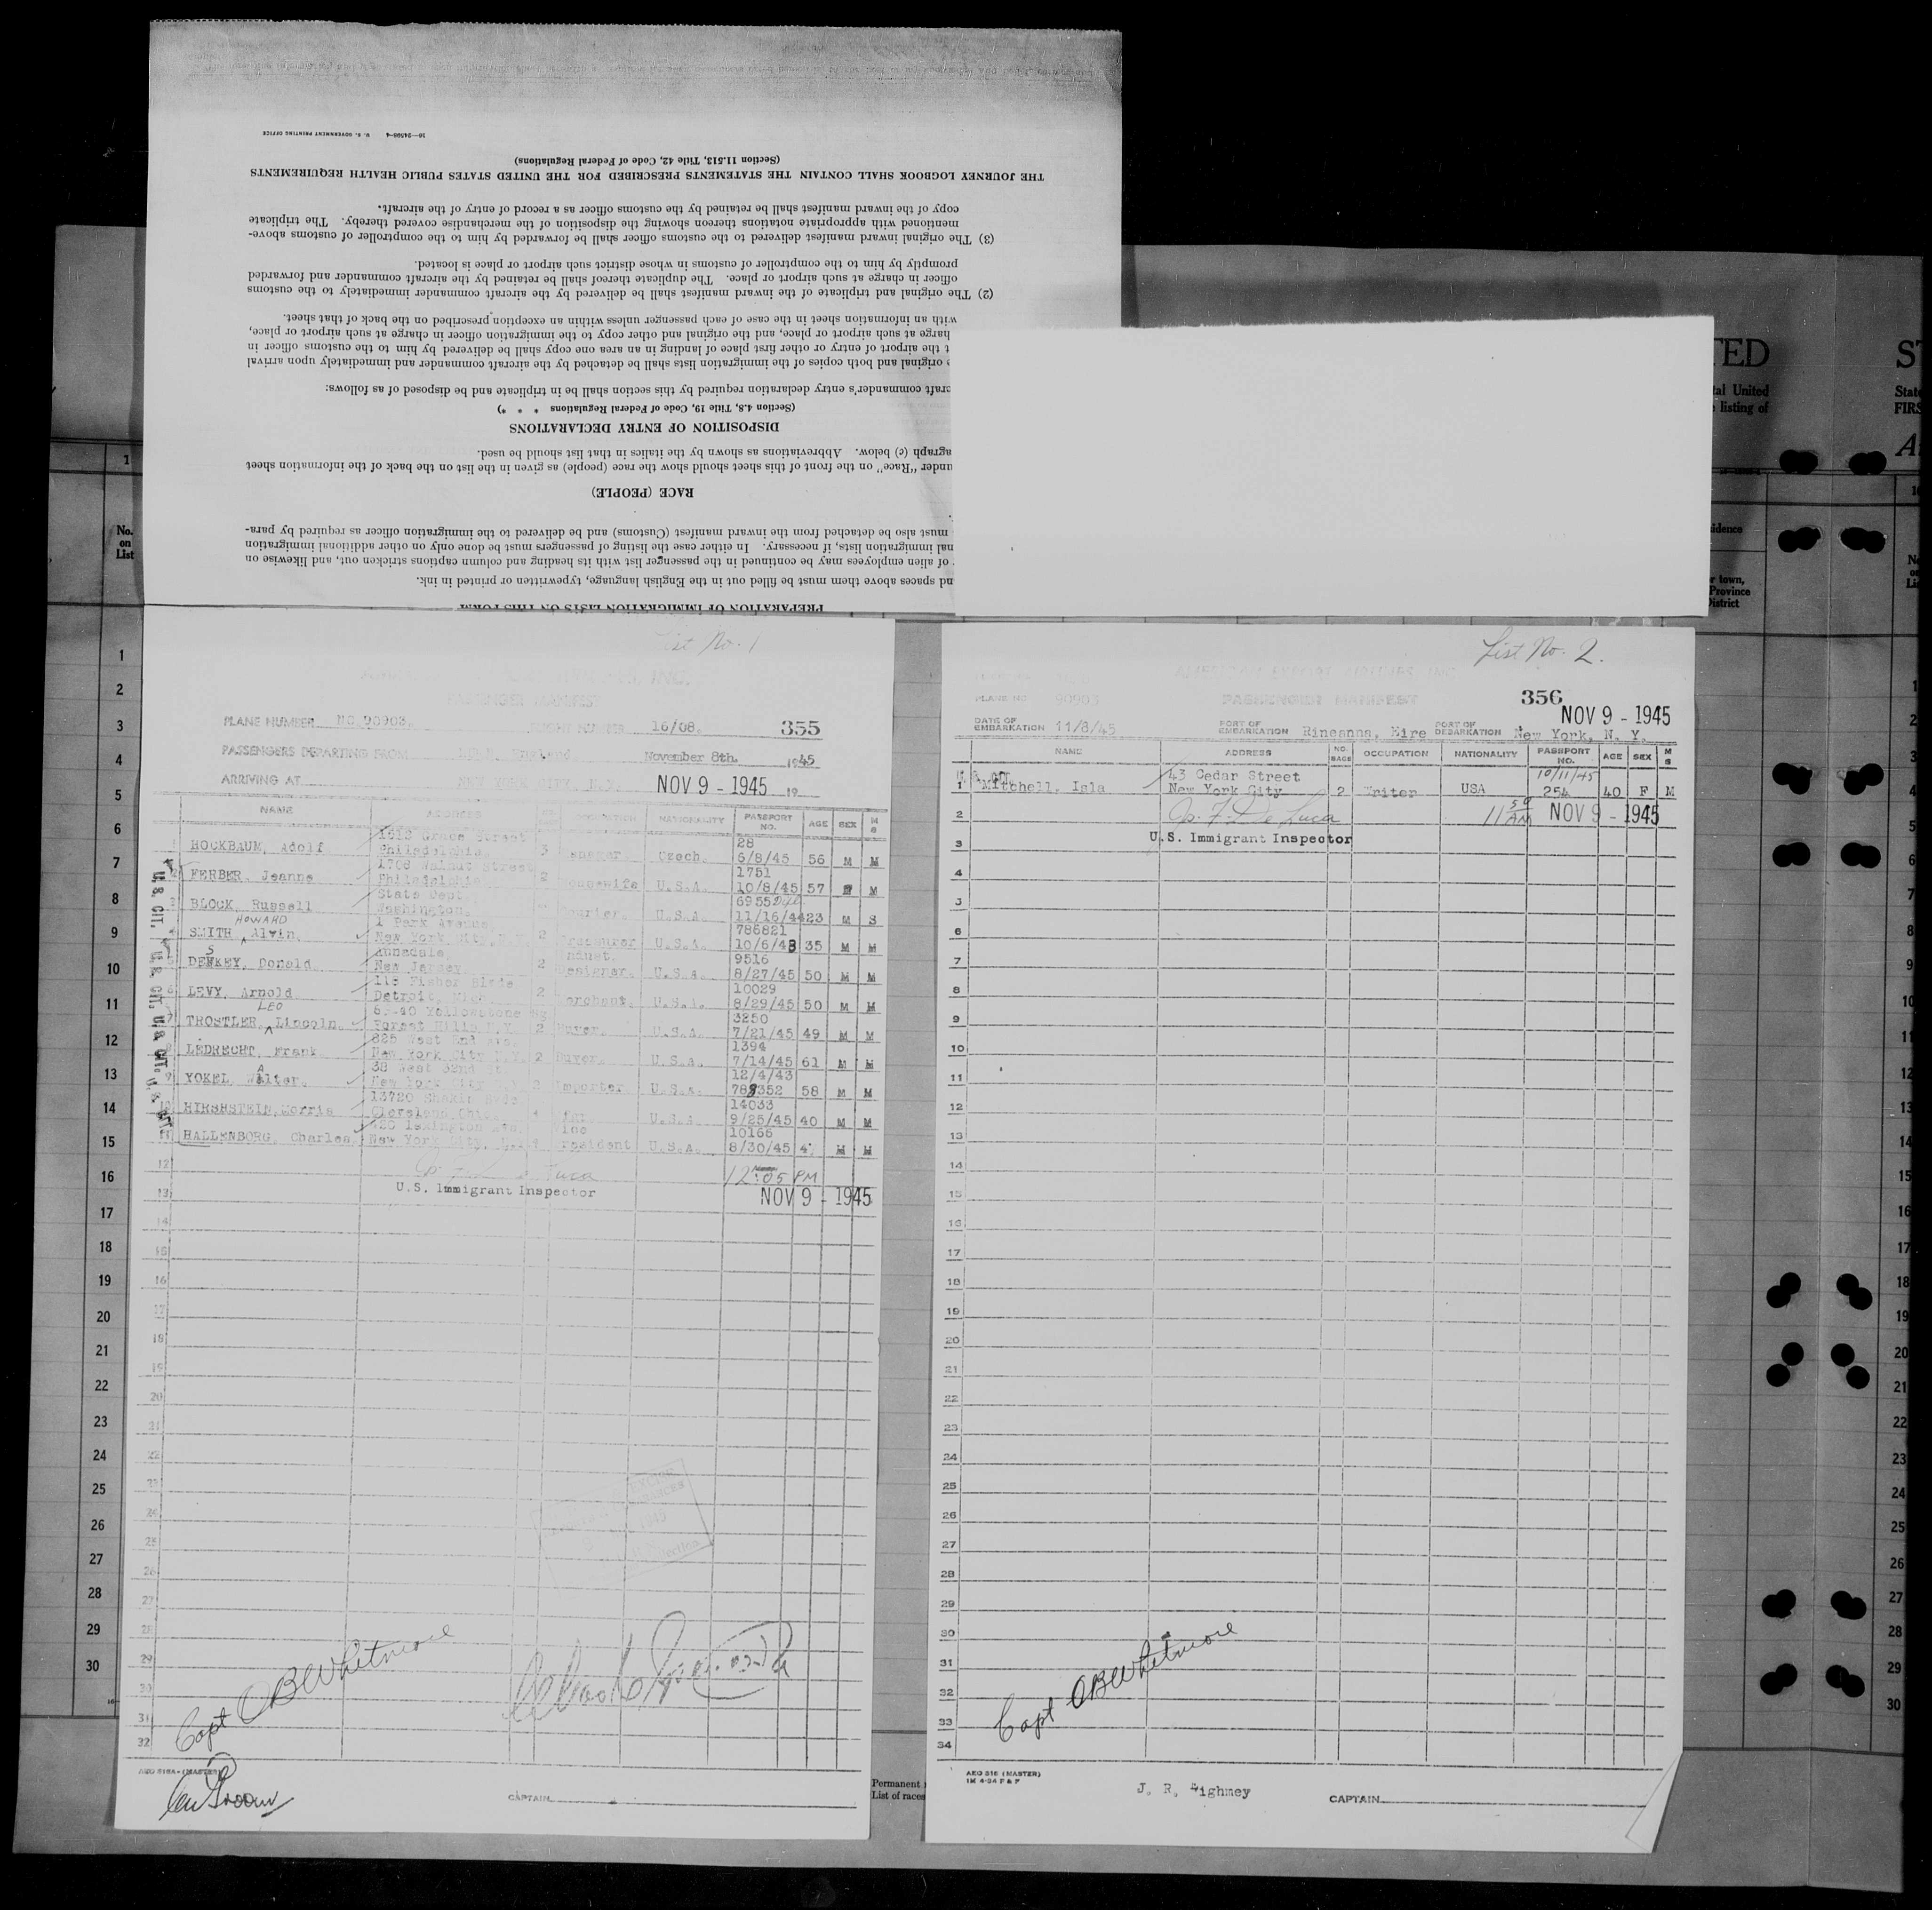 16—24508-4 U. S. GOVERNMENT PRINTING OFFICE
(Section 11.513, Title 42, Code of Federal Regulations)
THE JOURNEY LOGBOOK SHALL CONTAIN THE STATEMENTS PRESCRIBED FOR THE UNITED STATES PUBLIC HEALTH REQUIREMENTS
copy of the inward manifest shall be retained by the customs officer as a record of entry of the aircraft.
mentioned with appropriate notations thereon showing the disposition of the merchandise covered thereby. The triplicate
(3) The original inward manifest delivered to the customs officer shall be forwarded by him to the comptroller of customs above-
promptly by him to the comptroller of customs in whose district such airport or place is located.
officer in charge at such airport or place. The duplicate thereof shall be retained by the aircraft commander and forwarded
(2) The original and triplicate of the inward manifest shall be delivered by the aircraft commander immediately to the customs
with an information sheet in the case of each passenger unless within an exception prescribed on the back of that sheet.
harge at such airport or place, and the original and other copy to the immigration officer in charge at such airport or place,
t the airport of entry or other first place of landing in an area one copy shall be delivered by him to the customs officer in
e original and both copies of the immigration lists shall be detached by the aircraft commander and immediately upon arrival
craft commander's entry declaration required by this section shall be in triplicate and be disposed of as follows:
(Section 4.8, Title 19, Code of Federal Regulations * * *)
DISPOSITION OF ENTRY DECLARATIONS
agraph (c) below. Abbreviations as shown by the italics in that list should be used.
under "Race" on the front of this sheet should show the race (people) as given in the list on the back of the information sheet
RACE (PEOPLE)
must also be detached from the inward manifest (Customs) and be delivered to the immigration officer as required by para-
nal immigration lists, if necessary. In either case the listing of passengers must be done only on other additional immigration
of alien employees may be continued in the passenger list with its heading and column captions stricken out, and likewise on
nd spaces above them must be filled out in the English language, typewritten or printed in ink.
PREPARATION OF IMMIGRATION LISTS ON THIS FORM
List No. 1
INC.
PASSENGER MANIFEST
PLANE NUMBER NC 90903. FLIGHT NUMBER 16/08. 355
PASSENGERS DEPARTING FROM England November 8th. 1945
ARRIVING AT NEW YORK CITY, N.Y. NOV 9 - 1945 19
NAME ADDRESS OCCUPATION NATIONALITY PASSPORT NO. AGE SEX M S
1513 Grace Street 28
1 HOCKBAUM, Adolf Philadelphia 3 Manager. Czech. 6/8/45 56 M M
1708 Walnut Street 1751
2 FERBER, Jeanne Philadelphia 2 Housewife U.S.A. 10/8/45 57 M
State Dept. 6955
3 BLOCK, Russell Washington. Courier. U.S.A. 11/16/44 23 M S
HOWARD 1 Park Avenue 786821
4 SMITH, Alvin. New York City 2 Treasurer U.S.A. 10/6/43 35 M M
S Annadale Indust. 9516
5 DENKEY, Donald New Jersey 2 Designer. U.S.A. 8/27/45 50 M M
115 Fisher Bldg 10029
6 LEVY, Arnold Detroit, Mich 2 Merchant. U.S.A. 8/29/45 50 M M
LEO Yellowstone 3250
7 TROSTLER, Lincoln. Forest Hills N.Y. 2 Buyer. U.S.A. 7/21/45 49 M M
825 West End Ave. 1394
8 LEDRECHT, Frank New York City N.Y. 2 Buyer. U.S.A. 7/14/45 61 M M
A 38 West 32nd St. 12/4/43
9 YOKEL, Walter. New York City 2 Importer. U.S.A. 788352 58 M M
13720 Shakin Bvde 14033
10 HIRSHSTEIN, Morris Cleveland, Ohio U.S.A. 9/25/45 40 M M
420 Lexington Ave. Vice 10166
11 HALLENBORG, Charles New York City, President U.S.A. 8/30/45 M M
U.S. CIT. U.S. CIT. U.S. CIT. U.S. CIT.
12 12:05 PM
U.S. Immigrant Inspector
13 NOV 9 - 1945
14
15
16
17
18
19
20
21
22
23
24
25
26
27
28
29
30
31
32
Capt OBWhitmore
AEO 516A-(MASTER)
CAPTAIN
List No. 2.
AMERICAN EXPORT AIRLINES INC
PLANE NO 90903 PASSENGER MANIFEST 356
NOV 9 - 1945
DATE OF EMBARKATION 11/8/45 PORT OF EMBARKATION Rineanna, Eire PORT OF DEBARKATION New York, N. Y.
NAME ADDRESS NO. BAGS OCCUPATION NATIONALITY PASSPORT NO. AGE SEX M S
U. S. CIT. 43 Cedar Street 10/11/45
1 Mitchell, Isla New York City 2 Writer USA 254 40 F M
2 Jo. F. De Luca 11 50 AM NOV 9 - 1945
3 U.S. Immigrant Inspector
4
5
6
7
8
9
10
11
12
13
14
15
16
17
18
19
20
21
22
23
24
25
26
27
28
29
30
31
32
33
34
Capt OBWhitmore
AEO 516 (MASTER)
1M 4-04 P & P
J. R. Wighmey
CAPTAIN
1
No. on List
1
2
3
4
5
6
7
8
9
10
11
12
13
14
15
16
17
18
19
20
21
22
23
24
25
26
27
28
29
30
Permanent
List of races
TED
tal United
listing of
idence
r town,
Province
District
ST
State
FIRS
A
1
2
3
4
5
6
7
8
9
10
11
12
13
14
15
16
17
18
19
20
21
22
23
24
25
26
27
28
29
30